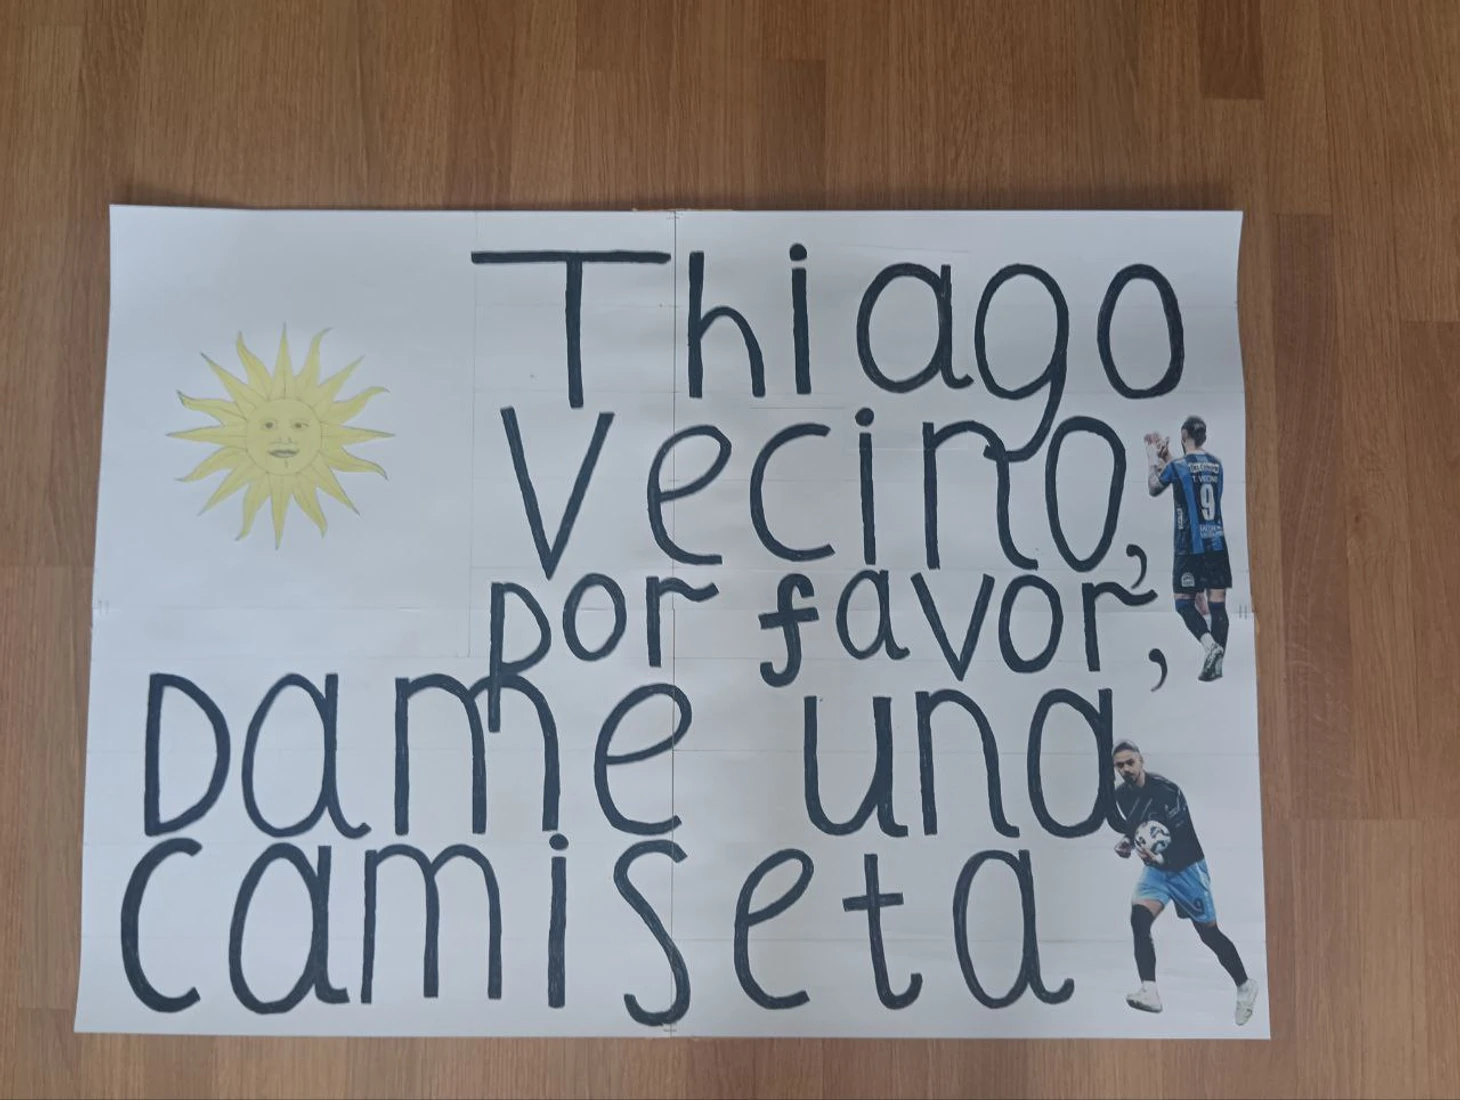 Thiago
Vecino,
por favor,
Dame una
camiseta
T. VECINO
9
9